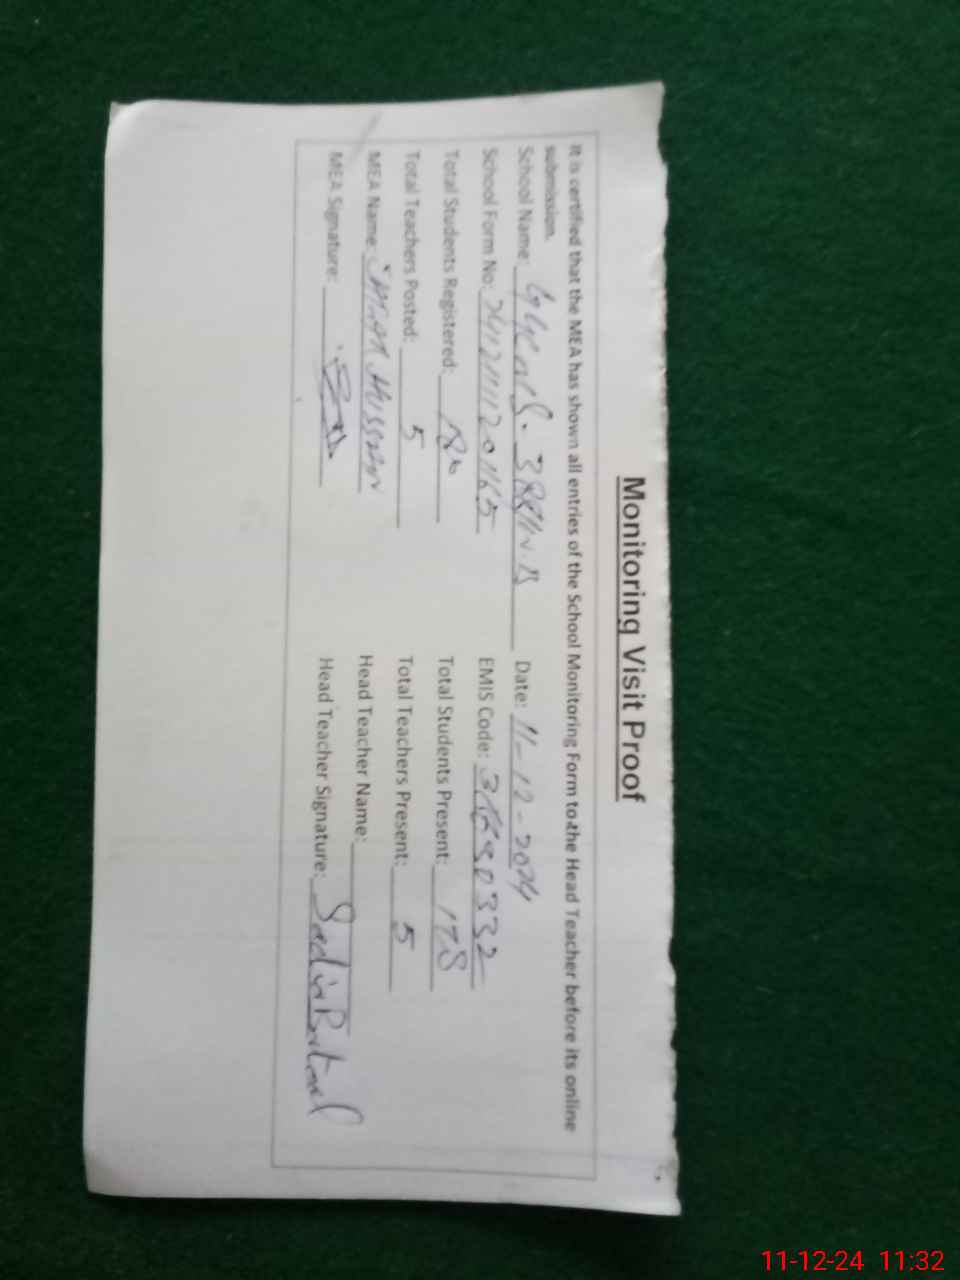 Monitoring Visit Proof
It is certified that the MEA has shown all entries of the School Monitoring Form to the Head Teacher before its online
submission.
School Name: Date: 11-12-2024
School Form No: EMIS Code:
Total Students Registered: Total Students Present: 178
Total Teachers Posted: 5 Total Teachers Present: 5
MEA Name: Hussain Head Teacher Name:
MEA Signature: Head Teacher Signature:
11-12-24 11:32